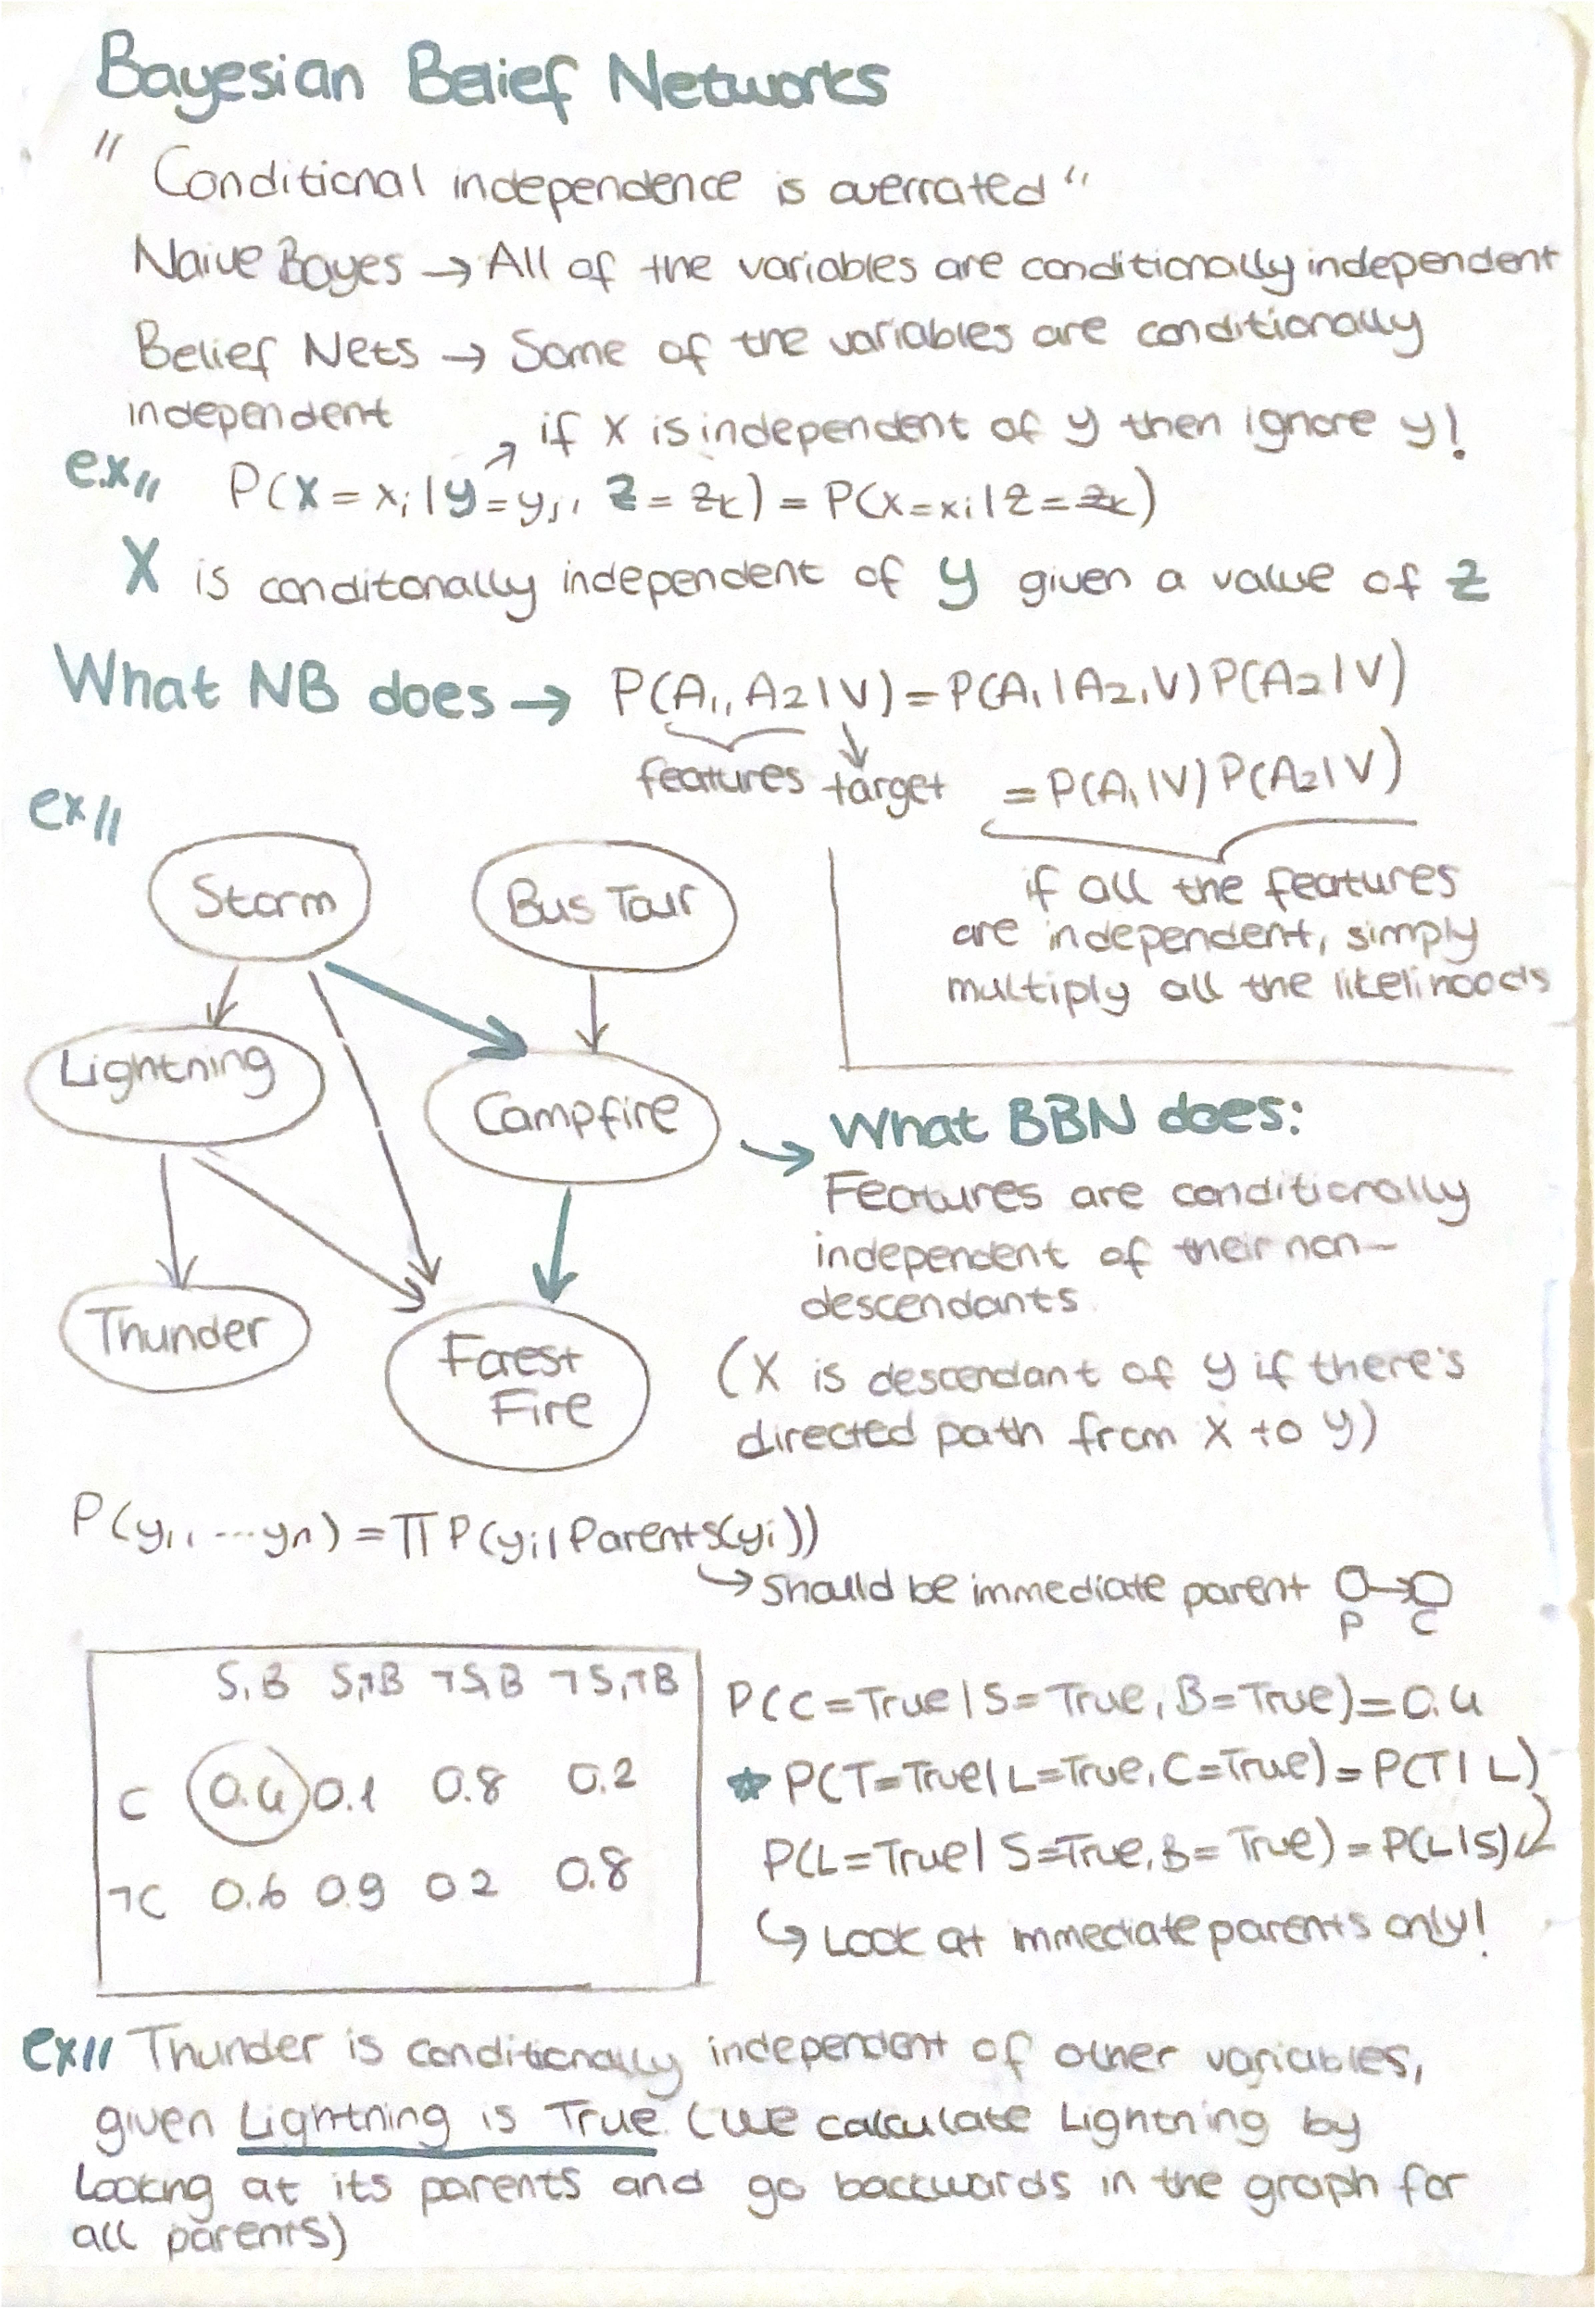 Bayesian Belief Networks
" Conditional independence is overrated "
Naive Bayes → All of the variables are conditionally independent
Belief Nets → Some of the variables are conditionally
independent
↗ if X is independent of y then ignore y!
ex// P(X=xi | y=yj, Z=zk) = P(X=xi | Z=zk)
X is conditonally independent of y given a value of Z
What NB does → P(A1, A2 | V) = P(A1 | A2, V) P(A2 | V)
features target = P(A1 | V) P(A2 | V)
ex//
if all the features
are independent, simply
multiply all the likelihoods
Storm
Bus Tour
Lightning
Campfire
Thunder
Forest
Fire
→ What BBN does:
Features are conditionally
independent of their non-
descendants
(X is descendant of y if there's
directed path from X to y)
P(y1, ...yn) = Π P(yi | Parents(yi))
↳ Should be immediate parent O→O
P C
S,B S,¬B ¬S,B ¬S,¬B
C 0.4 0.1 0.8 0.2
¬C 0.6 0.9 0.2 0.8
P(C=True | S=True, B=True)=0.4
★ P(T=True | L=True, C=True) = P(T | L)
P(L=True | S=True, B=True) = P(L | S)
↳ Look at immediate parents only!
ex// Thunder is conditionally independent of other variables,
given Lightning is True (we calculate Lightning by
looking at its parents and go backwards in the graph for
all parents)